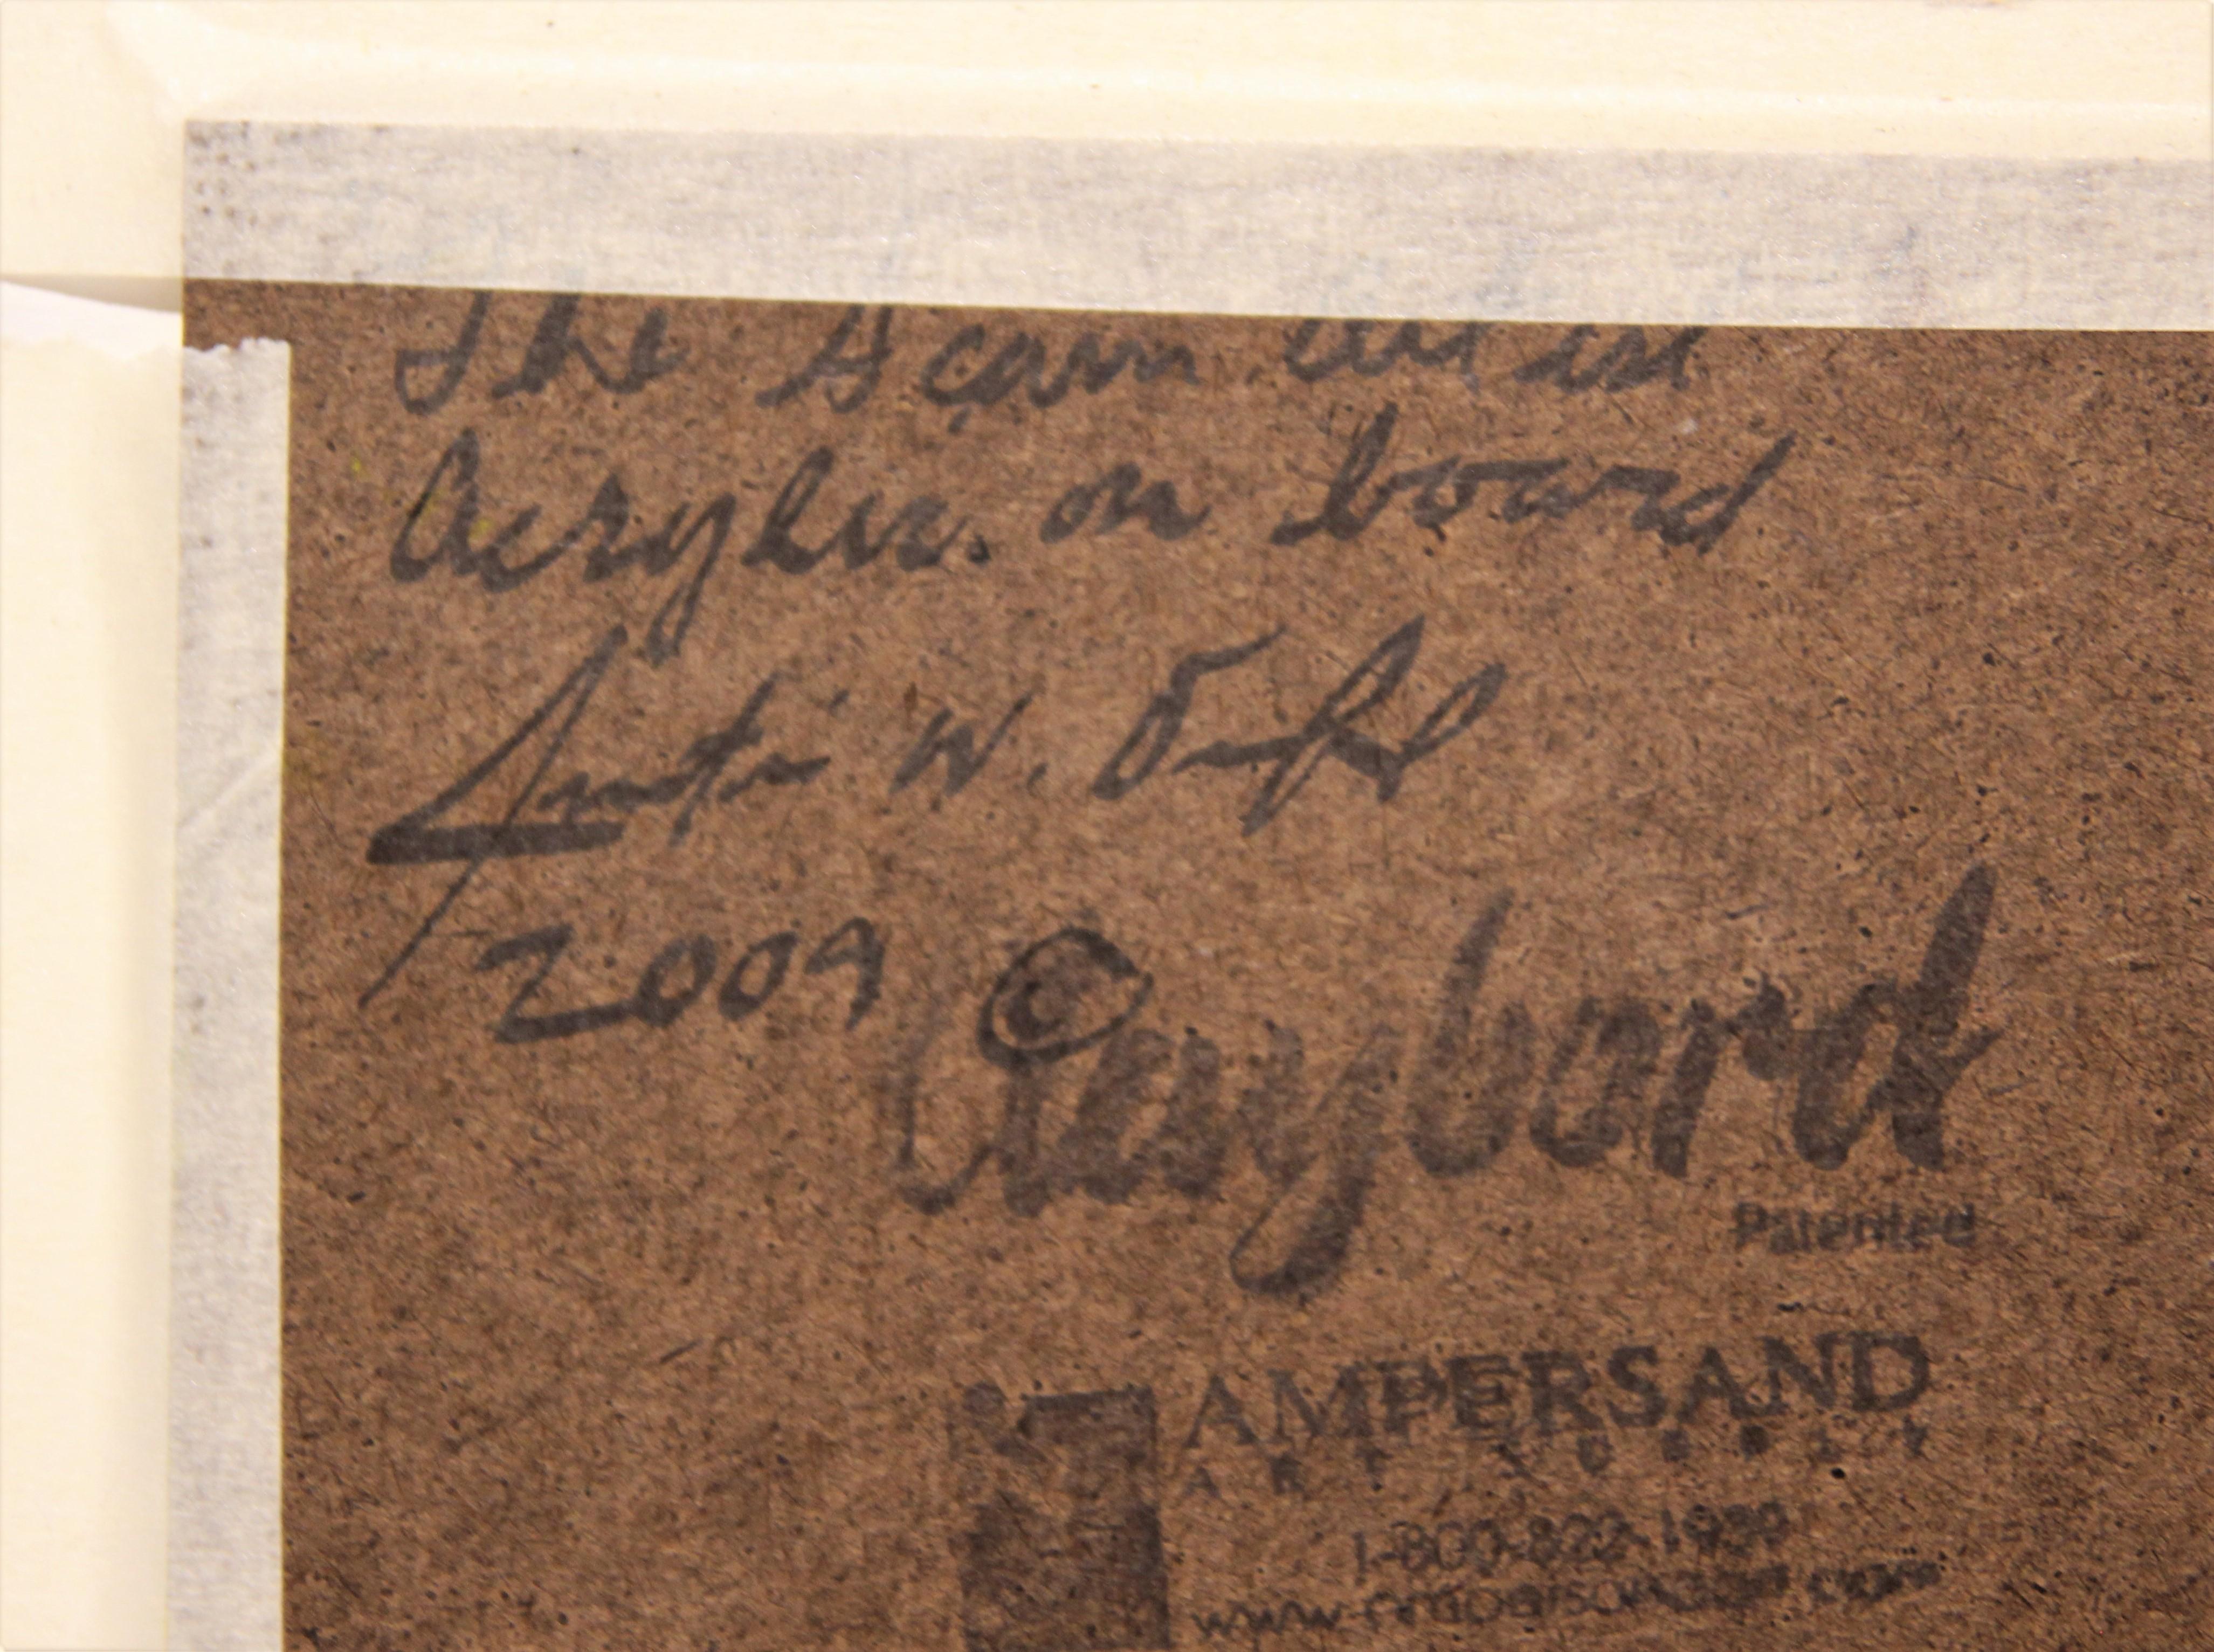 The Acorn
Acrylic on board
W.
2009 ©
Claybord
Patented
AMPERSAND
ART SUPPORT
1-800-822-1939
www.ampersandart.com